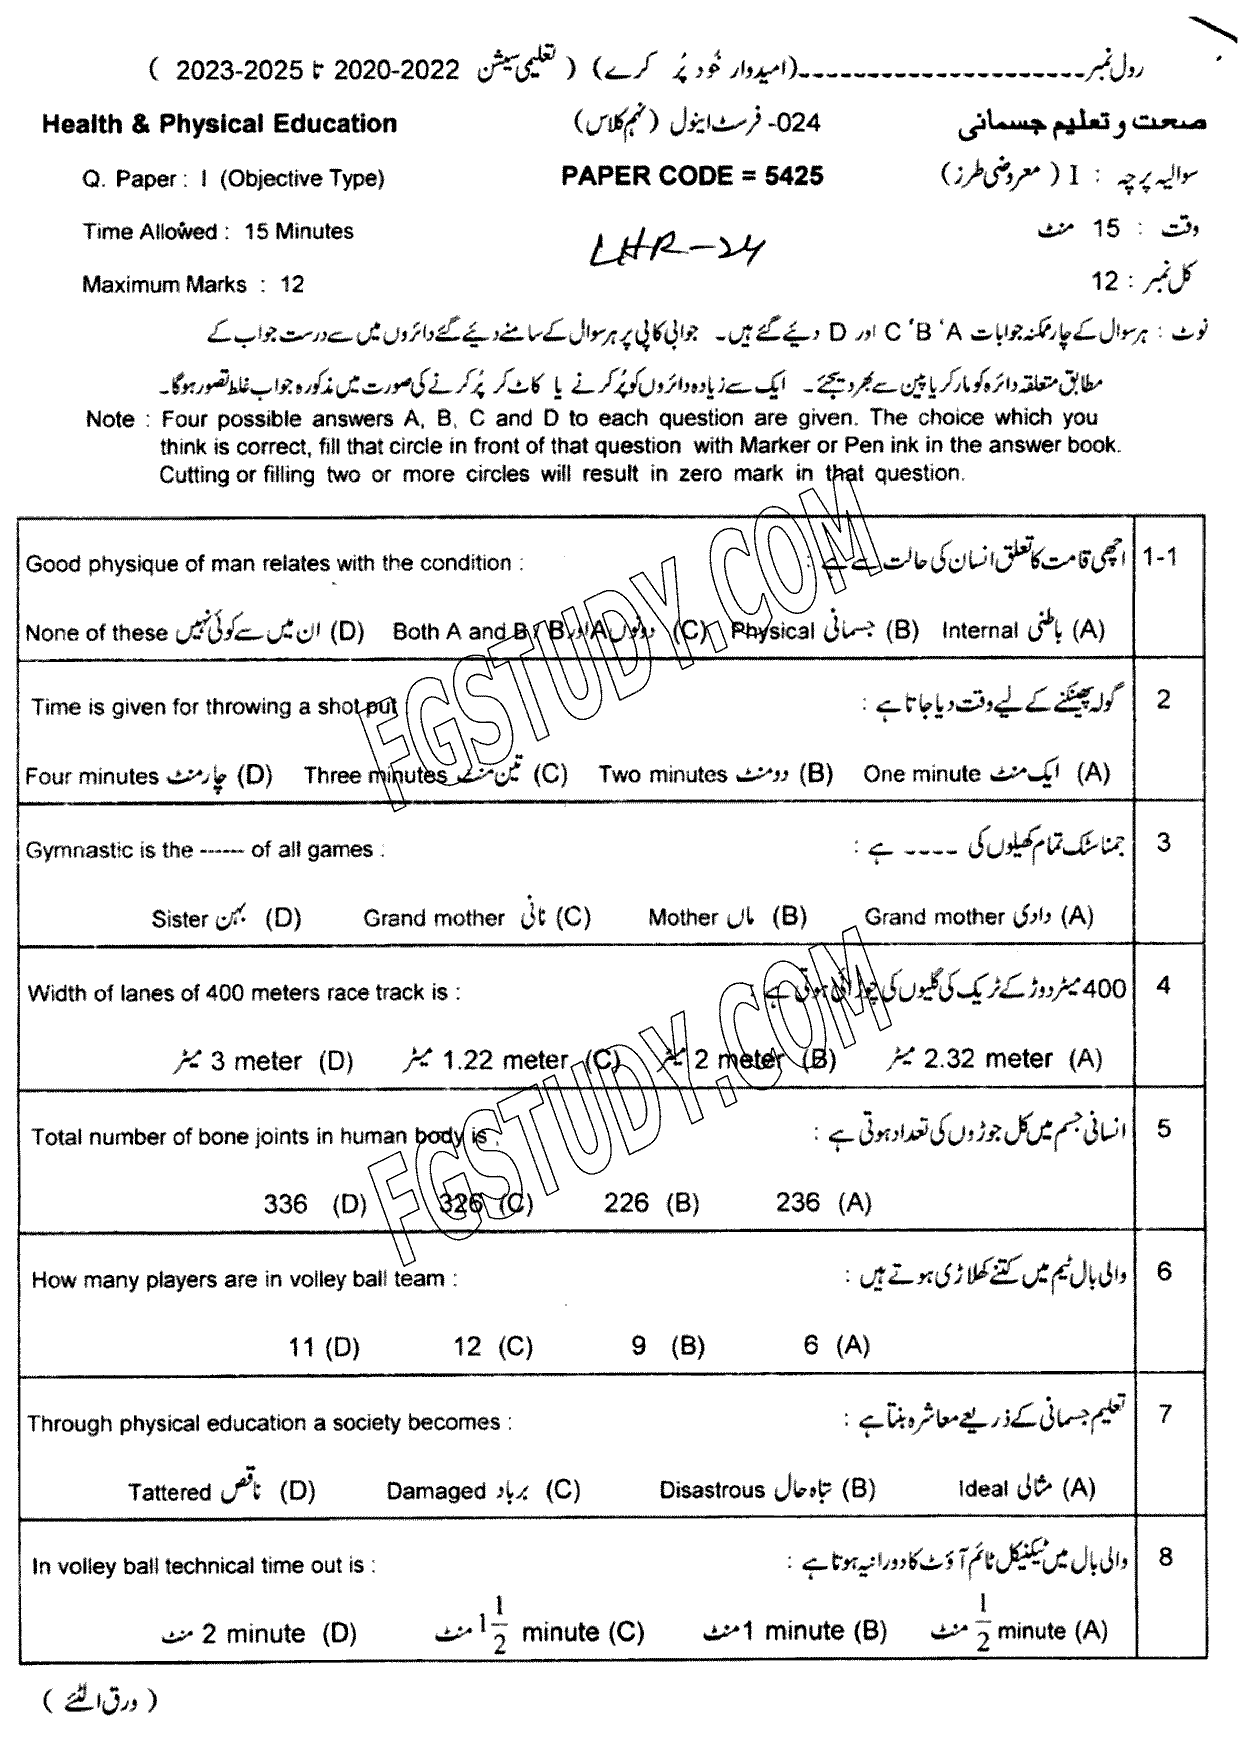 رول نمبر--------------------(امیدوار خود پُر کرے) ( تعلیمی سیشن 2022-2020 تا 2025-2023 )
Health & Physical Education 024- فرسٹ اینول (نہم کلاس) صحت و تعلیم جسمانی
Q. Paper : I (Objective Type) PAPER CODE = 5425 سوالیہ پرچہ : I ( معروضی طرز)
Time Allowed : 15 Minutes وقت : 15 منٹ
LHR-24
Maximum Marks : 12 کل نمبر : 12
نوٹ : ہر سوال کے چار ممکنہ جوابات A ‘B ‘C اور D دیئے گئے ہیں۔ جوابی کاپی پر ہر سوال کے سامنے دیئے گئے دائروں میں سے درست جواب کے
مطابق متعلقہ دائرہ کو مارکر یا پین سے بھر دیجئے۔ ایک سے زیادہ دائروں کو پُر کرنے یا کاٹ کر پُر کرنے کی صورت میں مذکورہ جواب غلط تصور ہوگا۔
Note : Four possible answers A, B, C and D to each question are given. The choice which you
think is correct, fill that circle in front of that question with Marker or Pen ink in the answer book.
Cutting or filling two or more circles will result in zero mark in that question.
Good physique of man relates with the condition : اچھی قامت کا تعلق انسان کی حالت سے ہے : 1-1
None of these ان میں سے کوئی نہیں (D) Both A and B دونوں A اور B (C) Physical جسمانی (B) Internal باطنی (A)
Time is given for throwing a shot put : گولہ پھینکنے کے لیے وقت دیا جاتا ہے : 2
Four minutes چار منٹ (D) Three minutes تین منٹ (C) Two minutes دو منٹ (B) One minute ایک منٹ (A)
Gymnastic is the ------ of all games : جمناسٹک تمام کھیلوں کی ---- ہے : 3
Sister بہن (D) Grand mother نانی (C) Mother ماں (B) Grand mother دادی (A)
Width of lanes of 400 meters race track is : 400 میٹر دوڑ کے ٹریک کی گلیوں کی چوڑائی ہوتی ہے : 4
میٹر 3 meter (D) میٹر 1.22 meter (C) میٹر 2 meter (B) میٹر 2.32 meter (A)
Total number of bone joints in human body is : انسانی جسم میں کل جوڑوں کی تعداد ہوتی ہے : 5
336 (D) 326 (C) 226 (B) 236 (A)
How many players are in volley ball team : والی بال ٹیم میں کتنے کھلاڑی ہوتے ہیں : 6
11 (D) 12 (C) 9 (B) 6 (A)
Through physical education a society becomes : تعلیم جسمانی کے ذریعے معاشرہ بنتا ہے : 7
Tattered ناقص (D) Damaged برباد (C) Disastrous تباہ حال (B) Ideal مثالی (A)
In volley ball technical time out is : والی بال میں ٹیکنیکل ٹائم آؤٹ کا دورانیہ ہوتا ہے : 8
منٹ 2 minute (D) منٹ 1 1/2 minute (C) منٹ 1 minute (B) منٹ 1/2 minute (A)
( ورق الٹئے )
FGSTUDY.COM
FGSTUDY.COM